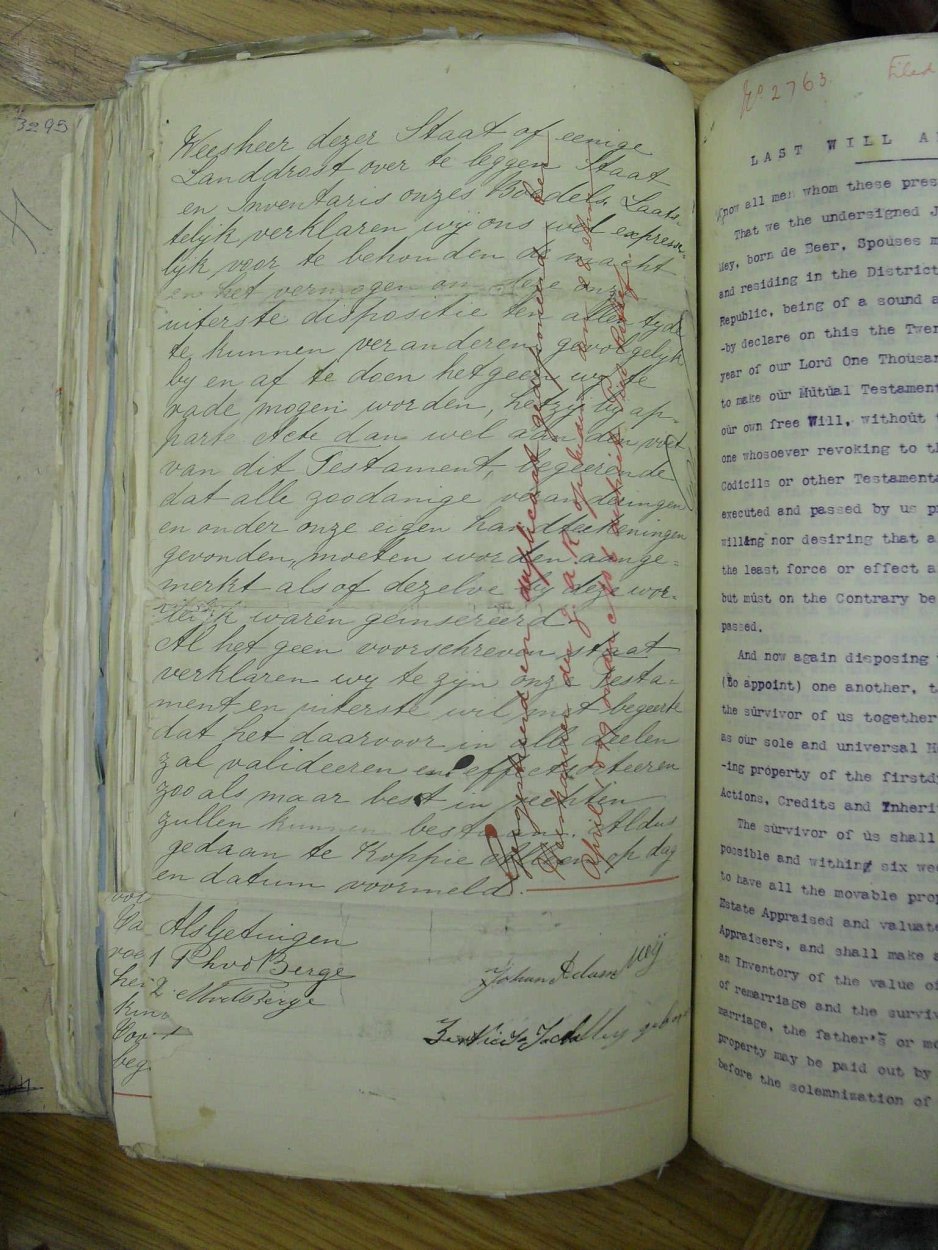 3295
Weesheer dezer Staat of eenige
Landdrost over te leggen Staat
en Inventaris onzes Boedels. Laats-
telijk verklaren wij ons wel expresse-
lyk voor te behouden de macht
en het vermogen om deze onze
uiterste dispositie ten allen tyde
te kunnen veranderen, gevolgelyk
by en af te doen hetgeen wy te
rade mogen worden, hetzij by ap-
parte Acte dan wel aan den voet
van dit Testament, begeerende
dat alle zoodanige veranderingen
en onder onze eigen handteekeningen
gevonden, moeten worden aange=
merkt als of dezelve by deze wor-
telijk waren geinsereerd.
Al het geen voorschreven staat
verklaren wy te zyn onze Testa=
ment en uiterste wil met begeerte
dat het daarvoor in alle deelen
zal valideeren en effect sorteeren
zoo als maar best in rechten
zullen kunnen bestaan. Aldus
gedaan te Koppie op dag
en datum voormeld.
Als Getuigen
1 P h v d Berge
2
Johan Adam Meij
Meij gebore
in duplicaat gedeponeerd
den
April
N°. 2763.
Filed
LAST WILL A
Know all men whom these pres
That we the undersigned J
Mey, born de Beer, Spouses m
and residing in the District
Republic, being of a sound a
-by declare on this the Twen
year of our Lord One Thousan
to make our Mutual Testament
our own free Will, without
one whosoever revoking to th
Codicils or other Testamenta
executed and passed by us pr
willing nor desiring that a
the least force or effect a
but must on the Contrary be
passed.
And now again disposing
(to appoint) one another, t
the survivor of us together
as our sole and universal H
-ing property of the firstd
Actions, Credits and Inheri
The survivor of us shall
possible and withing six wee
to have all the movable prop
Estate Appraised and valuate
Appraisers, and shall make a
an Inventory of the value of
of remarriage and the surviv
marriage, the father's or mo
property may be paid out by
before the solemnization of